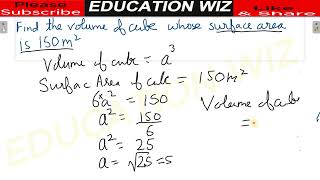 Please Subscribe
EDUCATION WIZ
Like & Share
Find the volume of cube whose surface area
is 150 m²
Volume of cube = a³
Surface Area of cube = 150m²
6a² = 150
a² = 150/6
a² = 25
a = √25 = 5
Volume of cub
=
EDUCATION WIZ